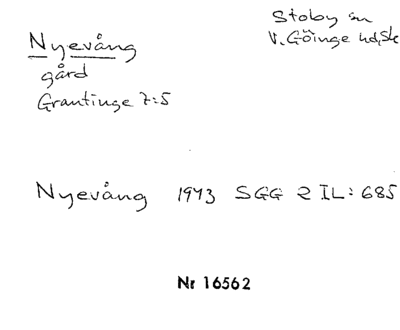 Nyevång
gård
Grantinge 7:5
Stoby sn
V. Göinge hd, Sk
Nyevång 1973 SGG 2 IL: 685
Nr 16562